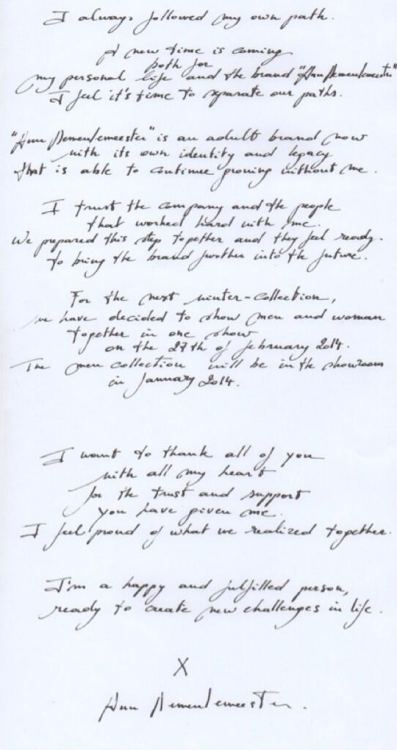 I always followed my own path.
A new time is coming
both for
my personal life and the brand "Ann Demeulemeester"
I feel it's time to separate our paths.
"Ann Demeulemeester" is an adult brand now
with its own identity and legacy
that is able to continue growing without me.
I trust the company and the people
that worked hard with me.
We prepared this step together and they feel ready.
to bring the brand further into the future.
For the next winter-collection,
we have decided to show men and woman
together in one show
on the 27th of february 2014.
The men collection will be in the showroom
in January 2014.
I want to thank all of you
with all my heart
for the trust and support
you have given me.
I feel proud of what we realized together.
I'm a happy and fulfilled person,
ready to create new challenges in life.
X
Ann Demeulemeester.